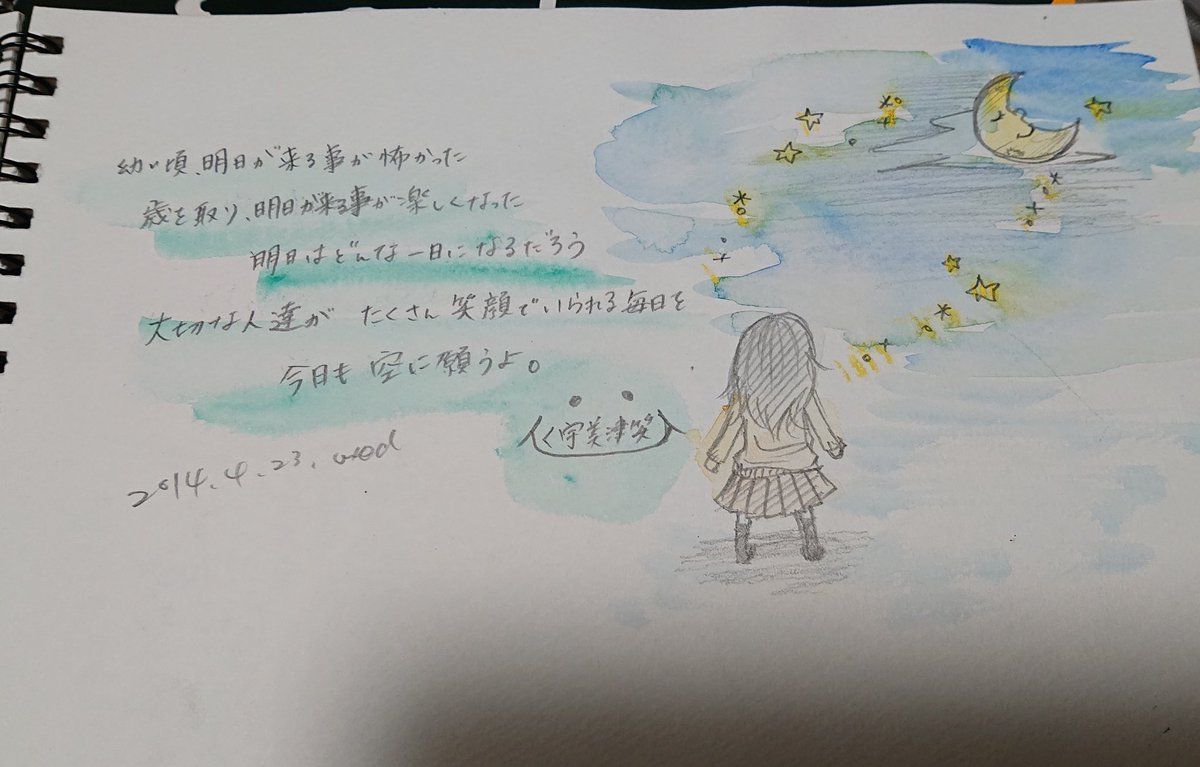 幼い頃、明日が来る事が怖かった
歳を取り、明日が来る事が楽しくなった
明日はどんな一日になるだろう
大切な人達が たくさん笑顔でいられる毎日を
今日も 空に願うよ。
宇美津笑
2014.4.23.wed